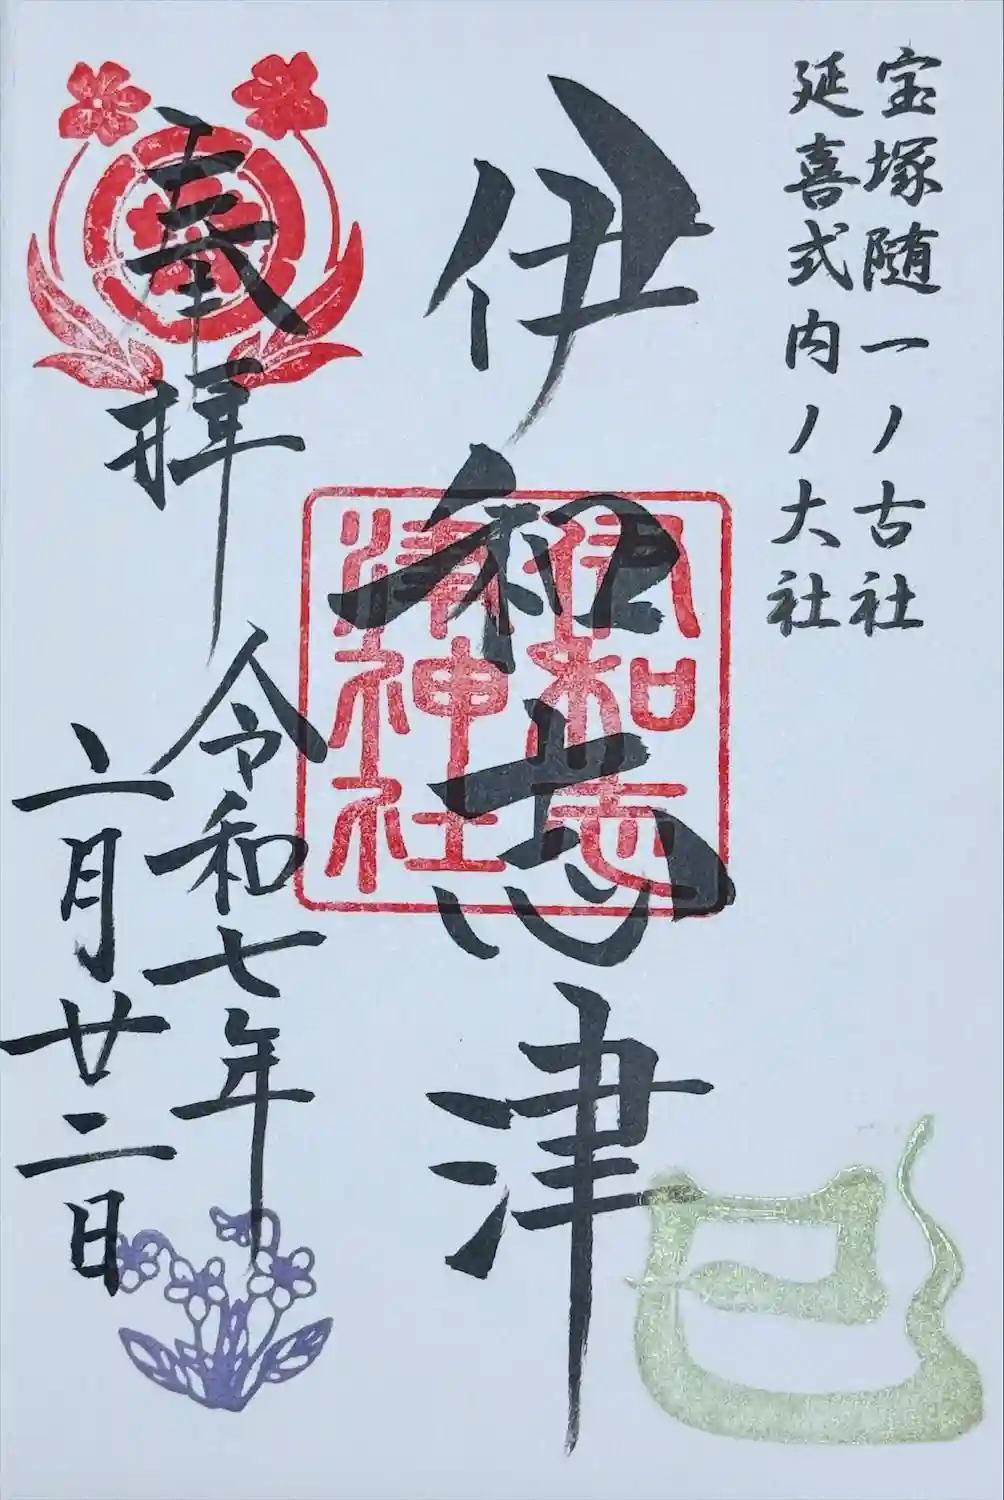 宝塚随一ノ古社
延喜式内ノ大社
伊和志津
伊和志
津神社
奉拝
令和七年
月廿二日
巳